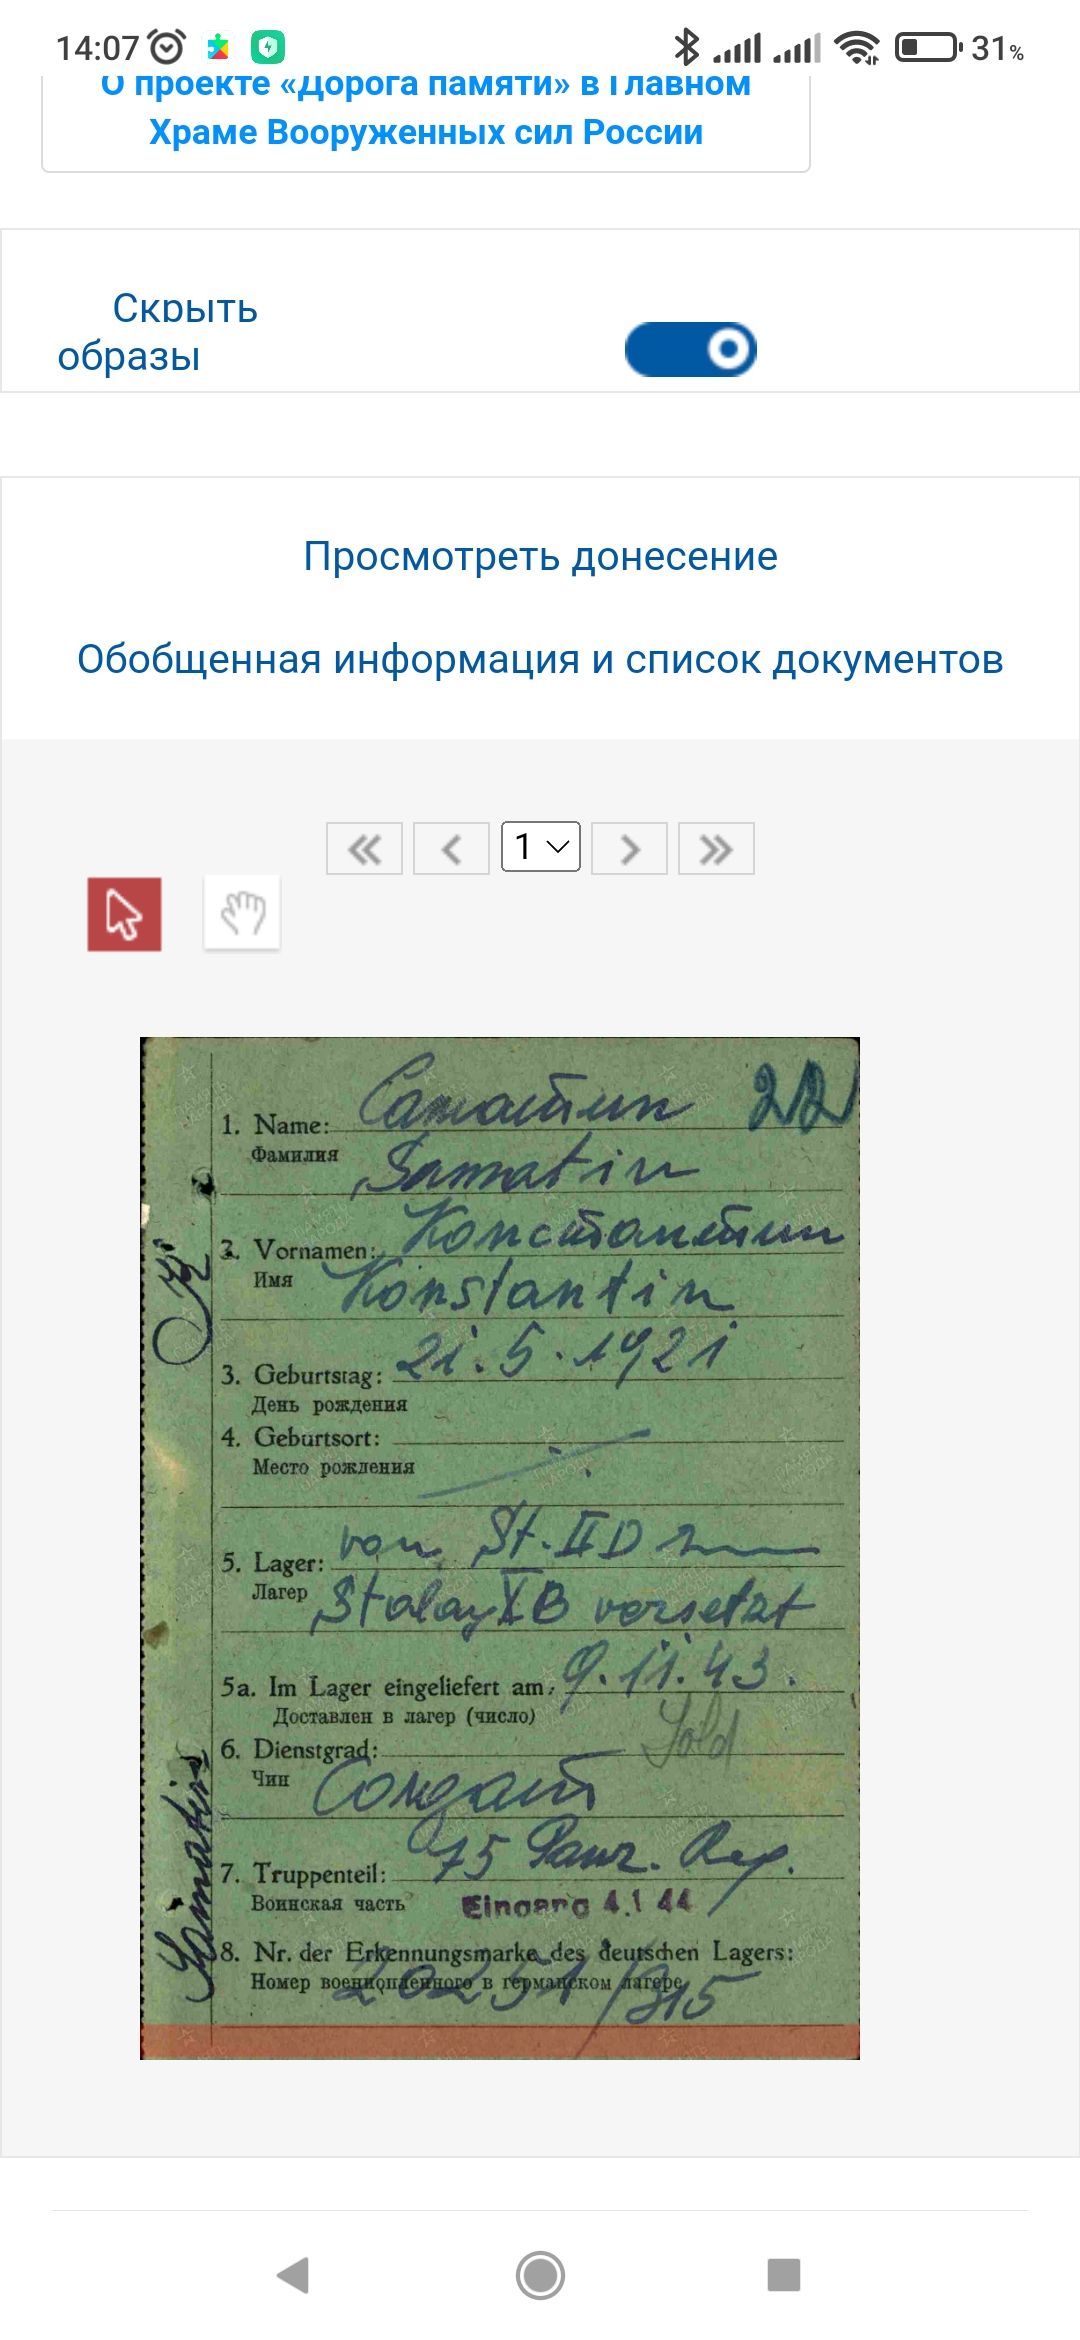 14:07
31%
О проекте «Дорога памяти» в Главном
Храме Вооруженных сил России
Скрыть
образы
Просмотреть донесение
Обобщенная информация и список документов
1
Саматин
22
1. Name:
Фамилия
Samatin
Константин
2. Vornamen:
Имя
Konstantin
21.5.1921
3. Geburtstag:
День рождения
4. Geburtsort:
Место рождения
von St. II D
5. Lager:
Лагер
Stalag X B versetzt
5a. Im Lager eingeliefert am: 9.11.43.
Доставлен в лагер (число)
Sold
6. Dienstgrad:
Чин
Солдат
75 Panz. Reg.
7. Truppenteil:
Воинская часть
Eingang 4.1 44
8. Nr. der Erkennungsmarke des deutschen Lagers:
Номер военнопленного в германском лагере
20251/315
Samatin